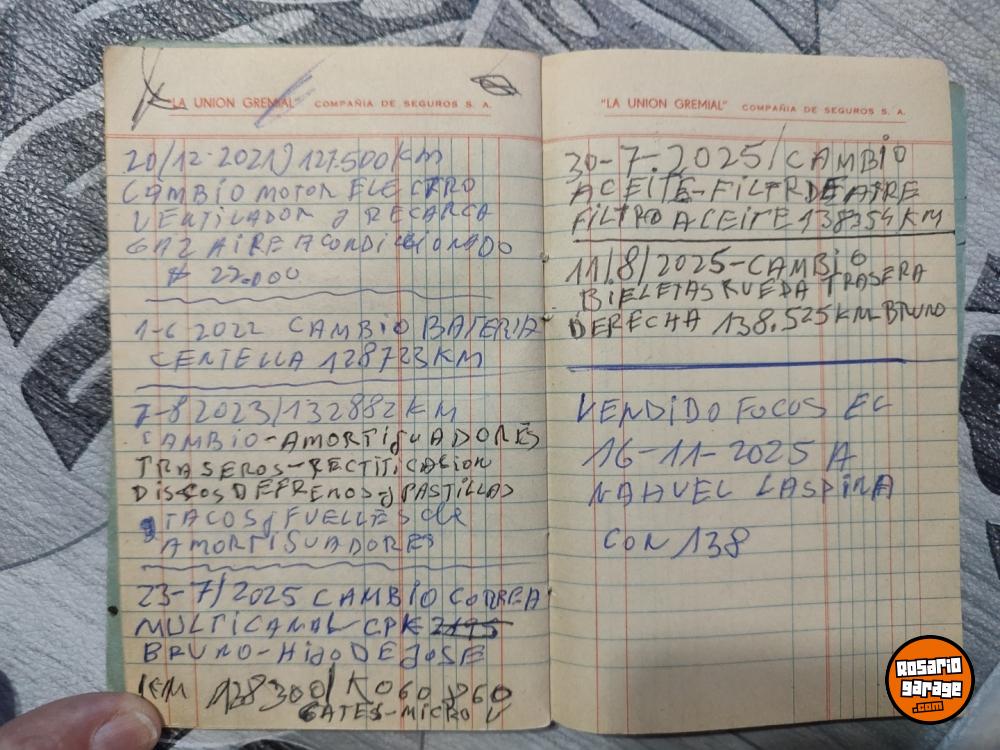 "LA UNION GREMIAL" COMPAÑIA DE SEGUROS S. A.
20/12-2021) 127.500/KM
CAMBIO MOTOR ELECTRO
VENTILADOR y RECARGA
GAZ AIRE ACONDICIONADO
$ 22.000
1-6 2022 CAMBIO BATERIA
CENTELLA 128723 KM
7-8 2023/132882 KM
CAMBIO-AMORTIGUADORES
TRASEROS-RECTIFICACION
DISCOS DE FRENOS y PASTILLAS
TACOS y FUELLES de
AMORTIGUADORES
23-7/2025 CAMBIO CORREA
MULTICANAL CPK
BRUNO-HIJO DE JOSE
KM 138300/K060 860
GATES-MICRO V
"LA UNION GREMIAL" COMPAÑIA DE SEGUROS S. A.
30-7.2025/CAMBIO
ACEITE-FILTRO DE AIRE
FILTRO ACEITE 138354 KM
11/8/2025-CAMBIO
BIELETAS RUEDA TRASERA
DERECHA 138.525 KM-BRUNO
VENDIDO FOCUS EL
16-11-2025 A
NAHUEL LASPINA
CON 138
ROSARIO
garage
.com